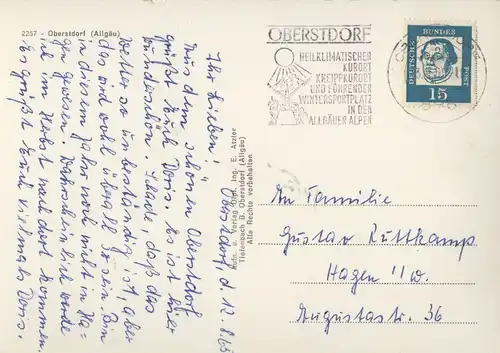 2257 - Oberstdorf (Allgäu)
Oberstdorf, d 12.8.63
Ihr Lieben!
Aus dem schönen Oberstdorf
grüßt Euch Doris. Es ist hier
wunderschön. Schade, daß das
Wetter so unbeständig ist, aber
das wird wohl überall so sein. Bin
in diesem Jahr noch nicht in Ha-
gen gewesen. Wahrscheinlich werde
ich im Herbst nach dort kommen.
Es grüßt Euch vielmals Doris.
Aufn. u. Verlag Dipl. Ing. E. Atzler
Tiefenbach b. Oberstdorf (Allgäu)
Alle Rechte vorbehalten
OBERSTDORF
HEILKLIMATISCHER
KURORT
KNEIPPKURORT
UND FÜHRENDER
WINTERSPORTPLATZ
IN DEN
ALLGÄUER ALPEN
DEUTSCHE BUNDES POST
15
An Familie
Gustav Ruttkamp
Hagen i/W.
Augustastr. 36